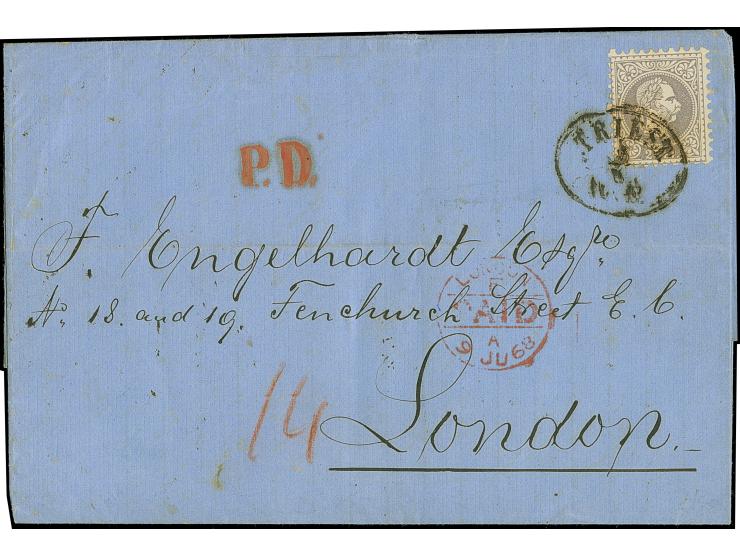 TRIEST
P.D.
F. Engelhardt Esqre
No 18. and 19. Fenchurch Street E. C.
LONDON
PAID
A
9 JU 68
14
London.